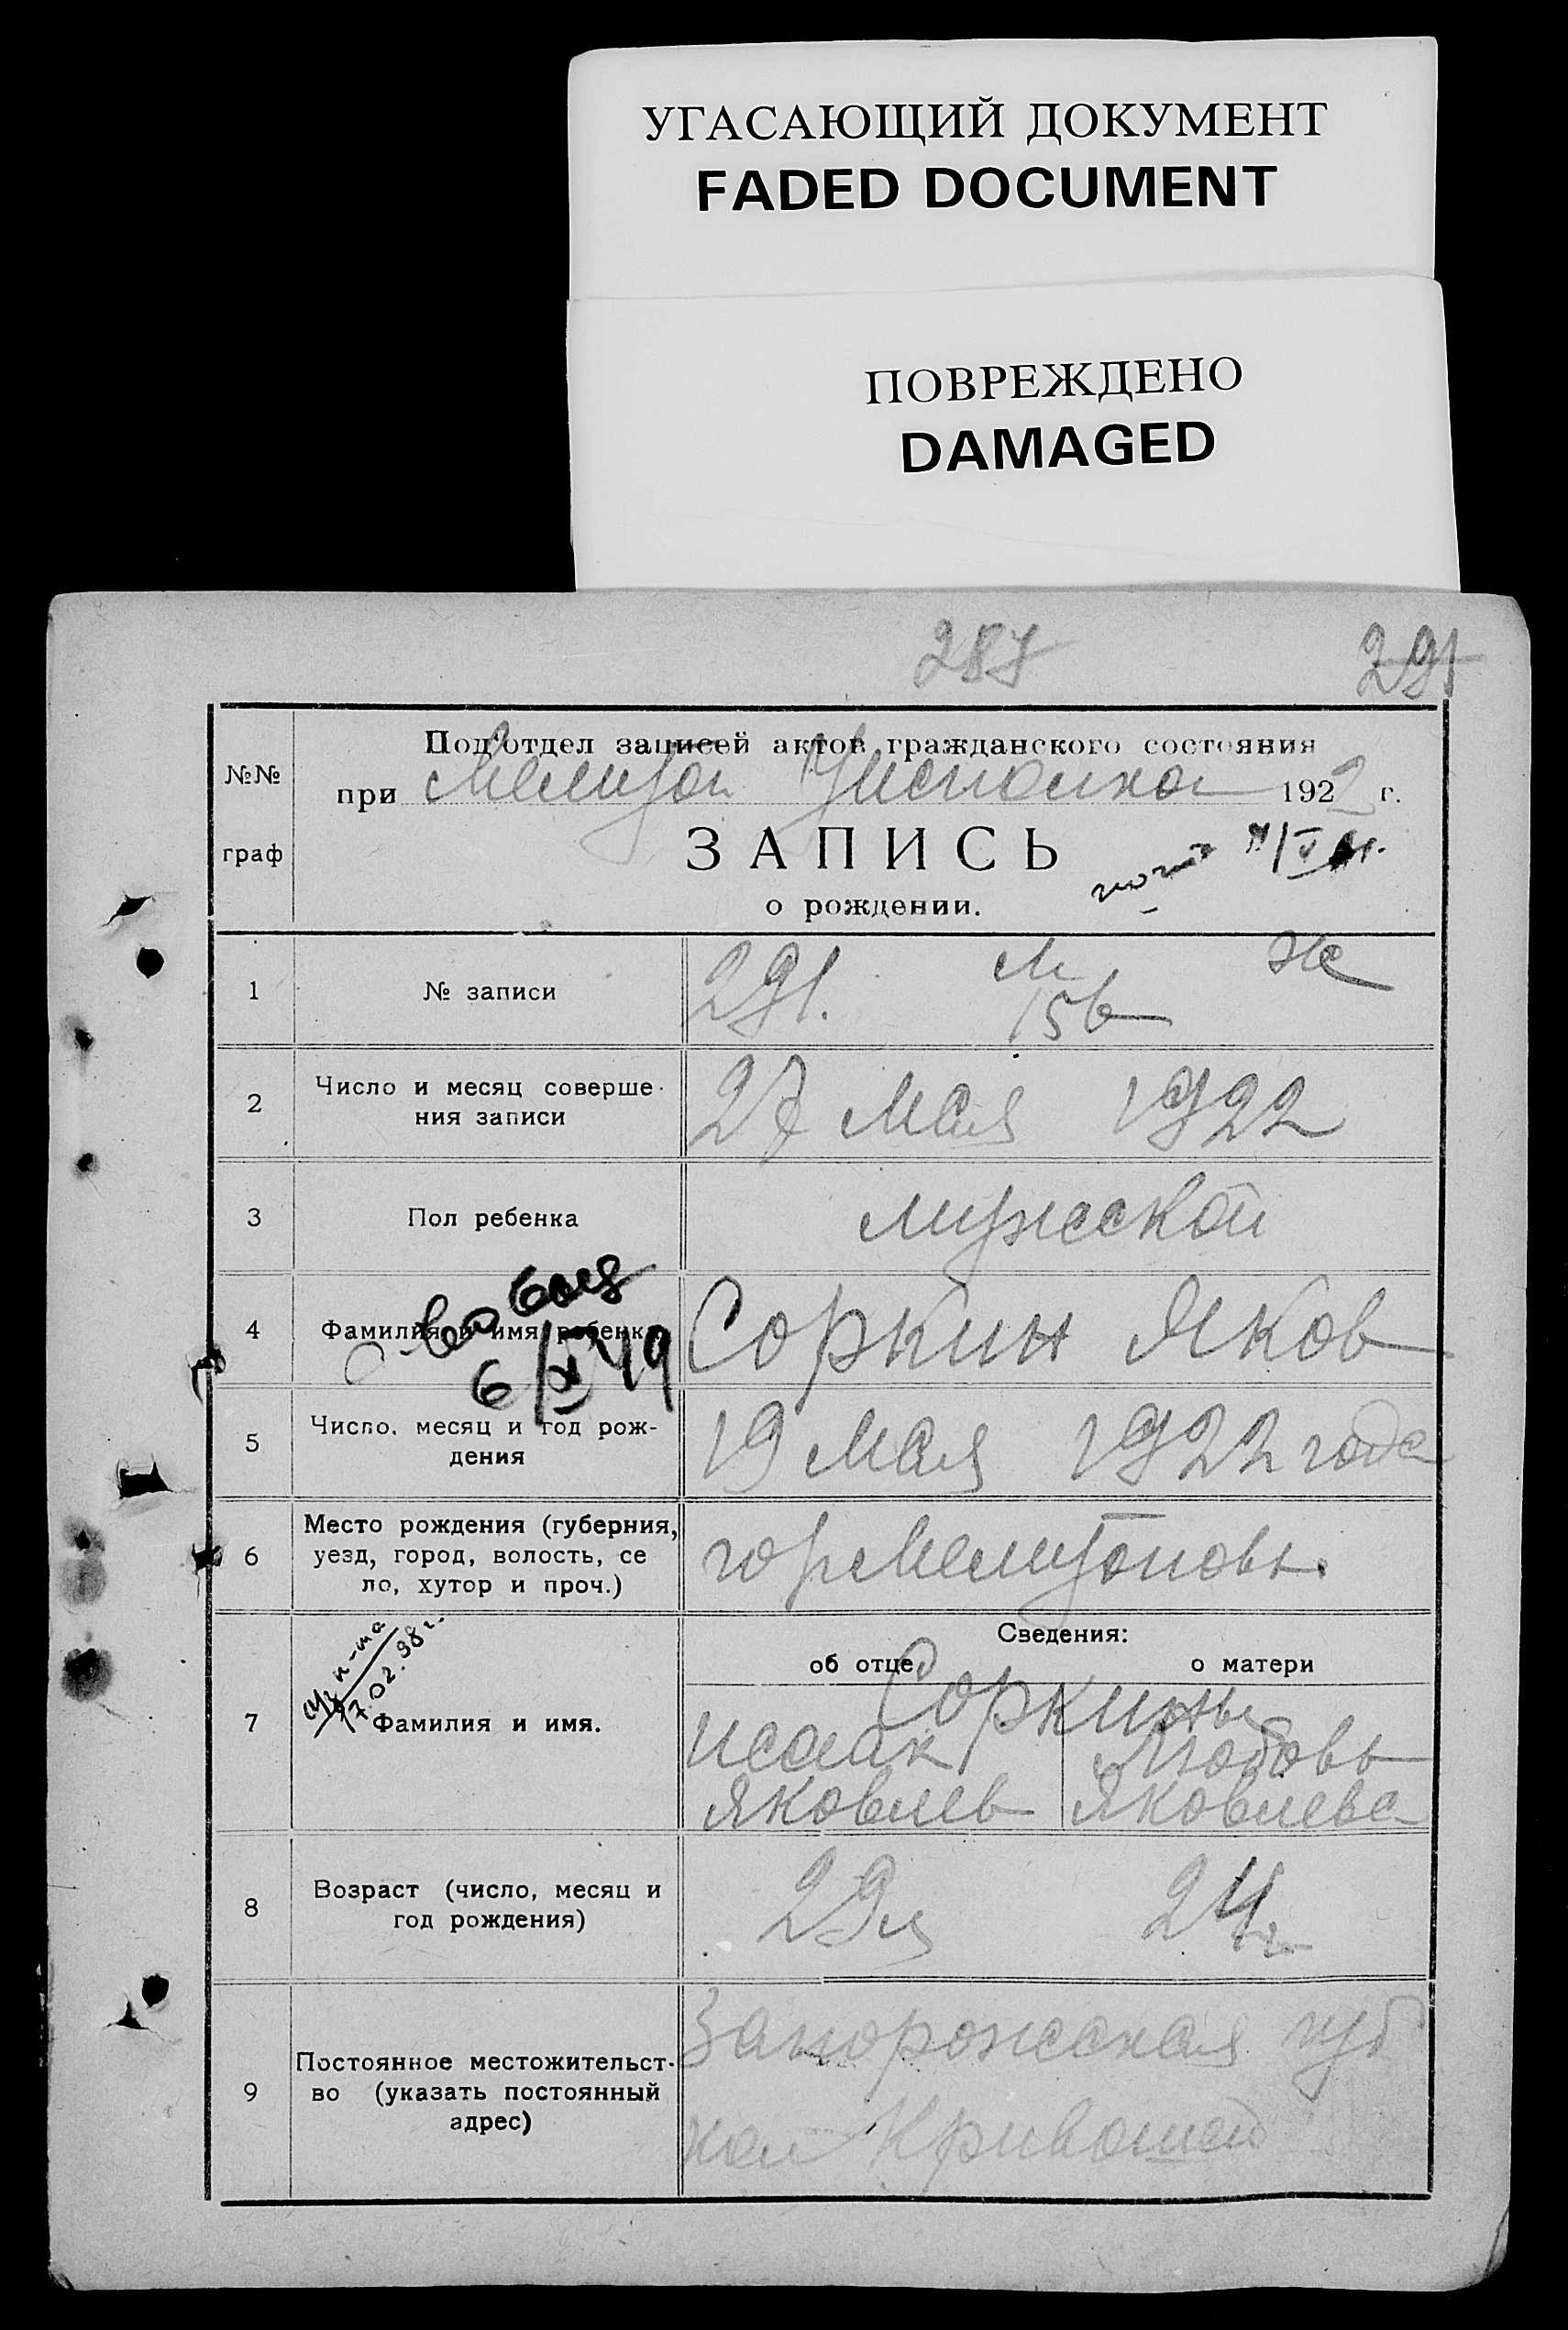 УГАСАЮЩИЙ ДОКУМЕНТ
FADED DOCUMENT
ПОВРЕЖДЕНО
DAMAGED
287
291
№№
граф
Под'отдел записей актов гражданского состояния
при 1922 г.
ЗАПИСЬ
о рождении.
1
№ записи
291. м ж
156
2
Число и месяц соверше-
ния записи
27 мая 1922
3
Пол ребенка
мужской
4
Фамилия и имя ребенка
Соркин Яков
6/XI 49
5
Число, месяц и год рож-
дения
19 мая 1922 года
6
Место рождения (губерния,
уезд, город, волость, се
ло, хутор и проч.)
гор
Сведения:
об отце
о матери
17.02.98 г.
7
Фамилия и имя.
Соркины
исаак
Любовь
Яковлев
Яковлева
8
Возраст (число, месяц и
год рождения)
29
24
9
Постоянное местожительст-
во (указать постоянный
адрес)
Запорожская губ